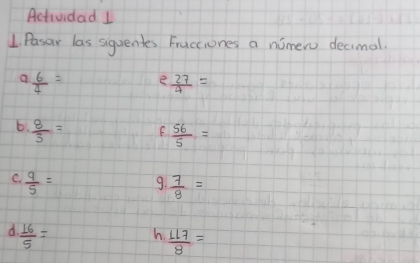 Actividad 1
1. Pasar las siguentes Fracciones a número decimal.
a. 6/4 =
e. 27/4 =
b. 8/3 =
f. 56/5 =
c. 9/5 =
g. 7/8 =
d. 16/5 =
h. 117/8 =